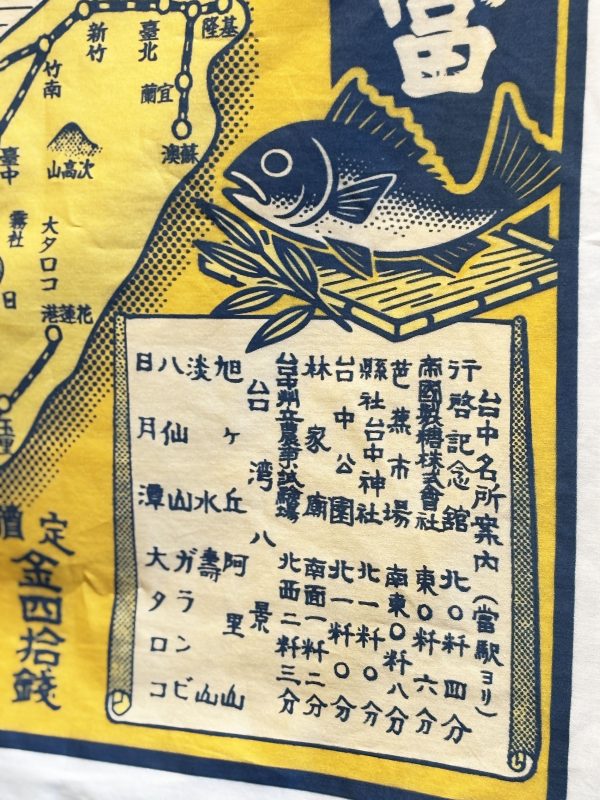 基隆
臺北
新竹
竹南
宜蘭
蘇澳
次高山
臺中
霧社
大タロコ
花蓮港
日
定
金四拾錢
台中名所案內(當駅ヨリ)
行啓記念舘 北〇粁四分
帝國製糖株式會社 東〇粁六分
芭蕉市場 南東〇粁八分
縣社台中神社 北一粁〇分
台中公園 北一粁〇分
林家廟 南面一粁二分
台中州立農事試驗場 北西二粁三分
台湾八景
旭ヶ丘 阿里山
淡水 壽山
八仙山 ガランビ
日月潭 大タロコ